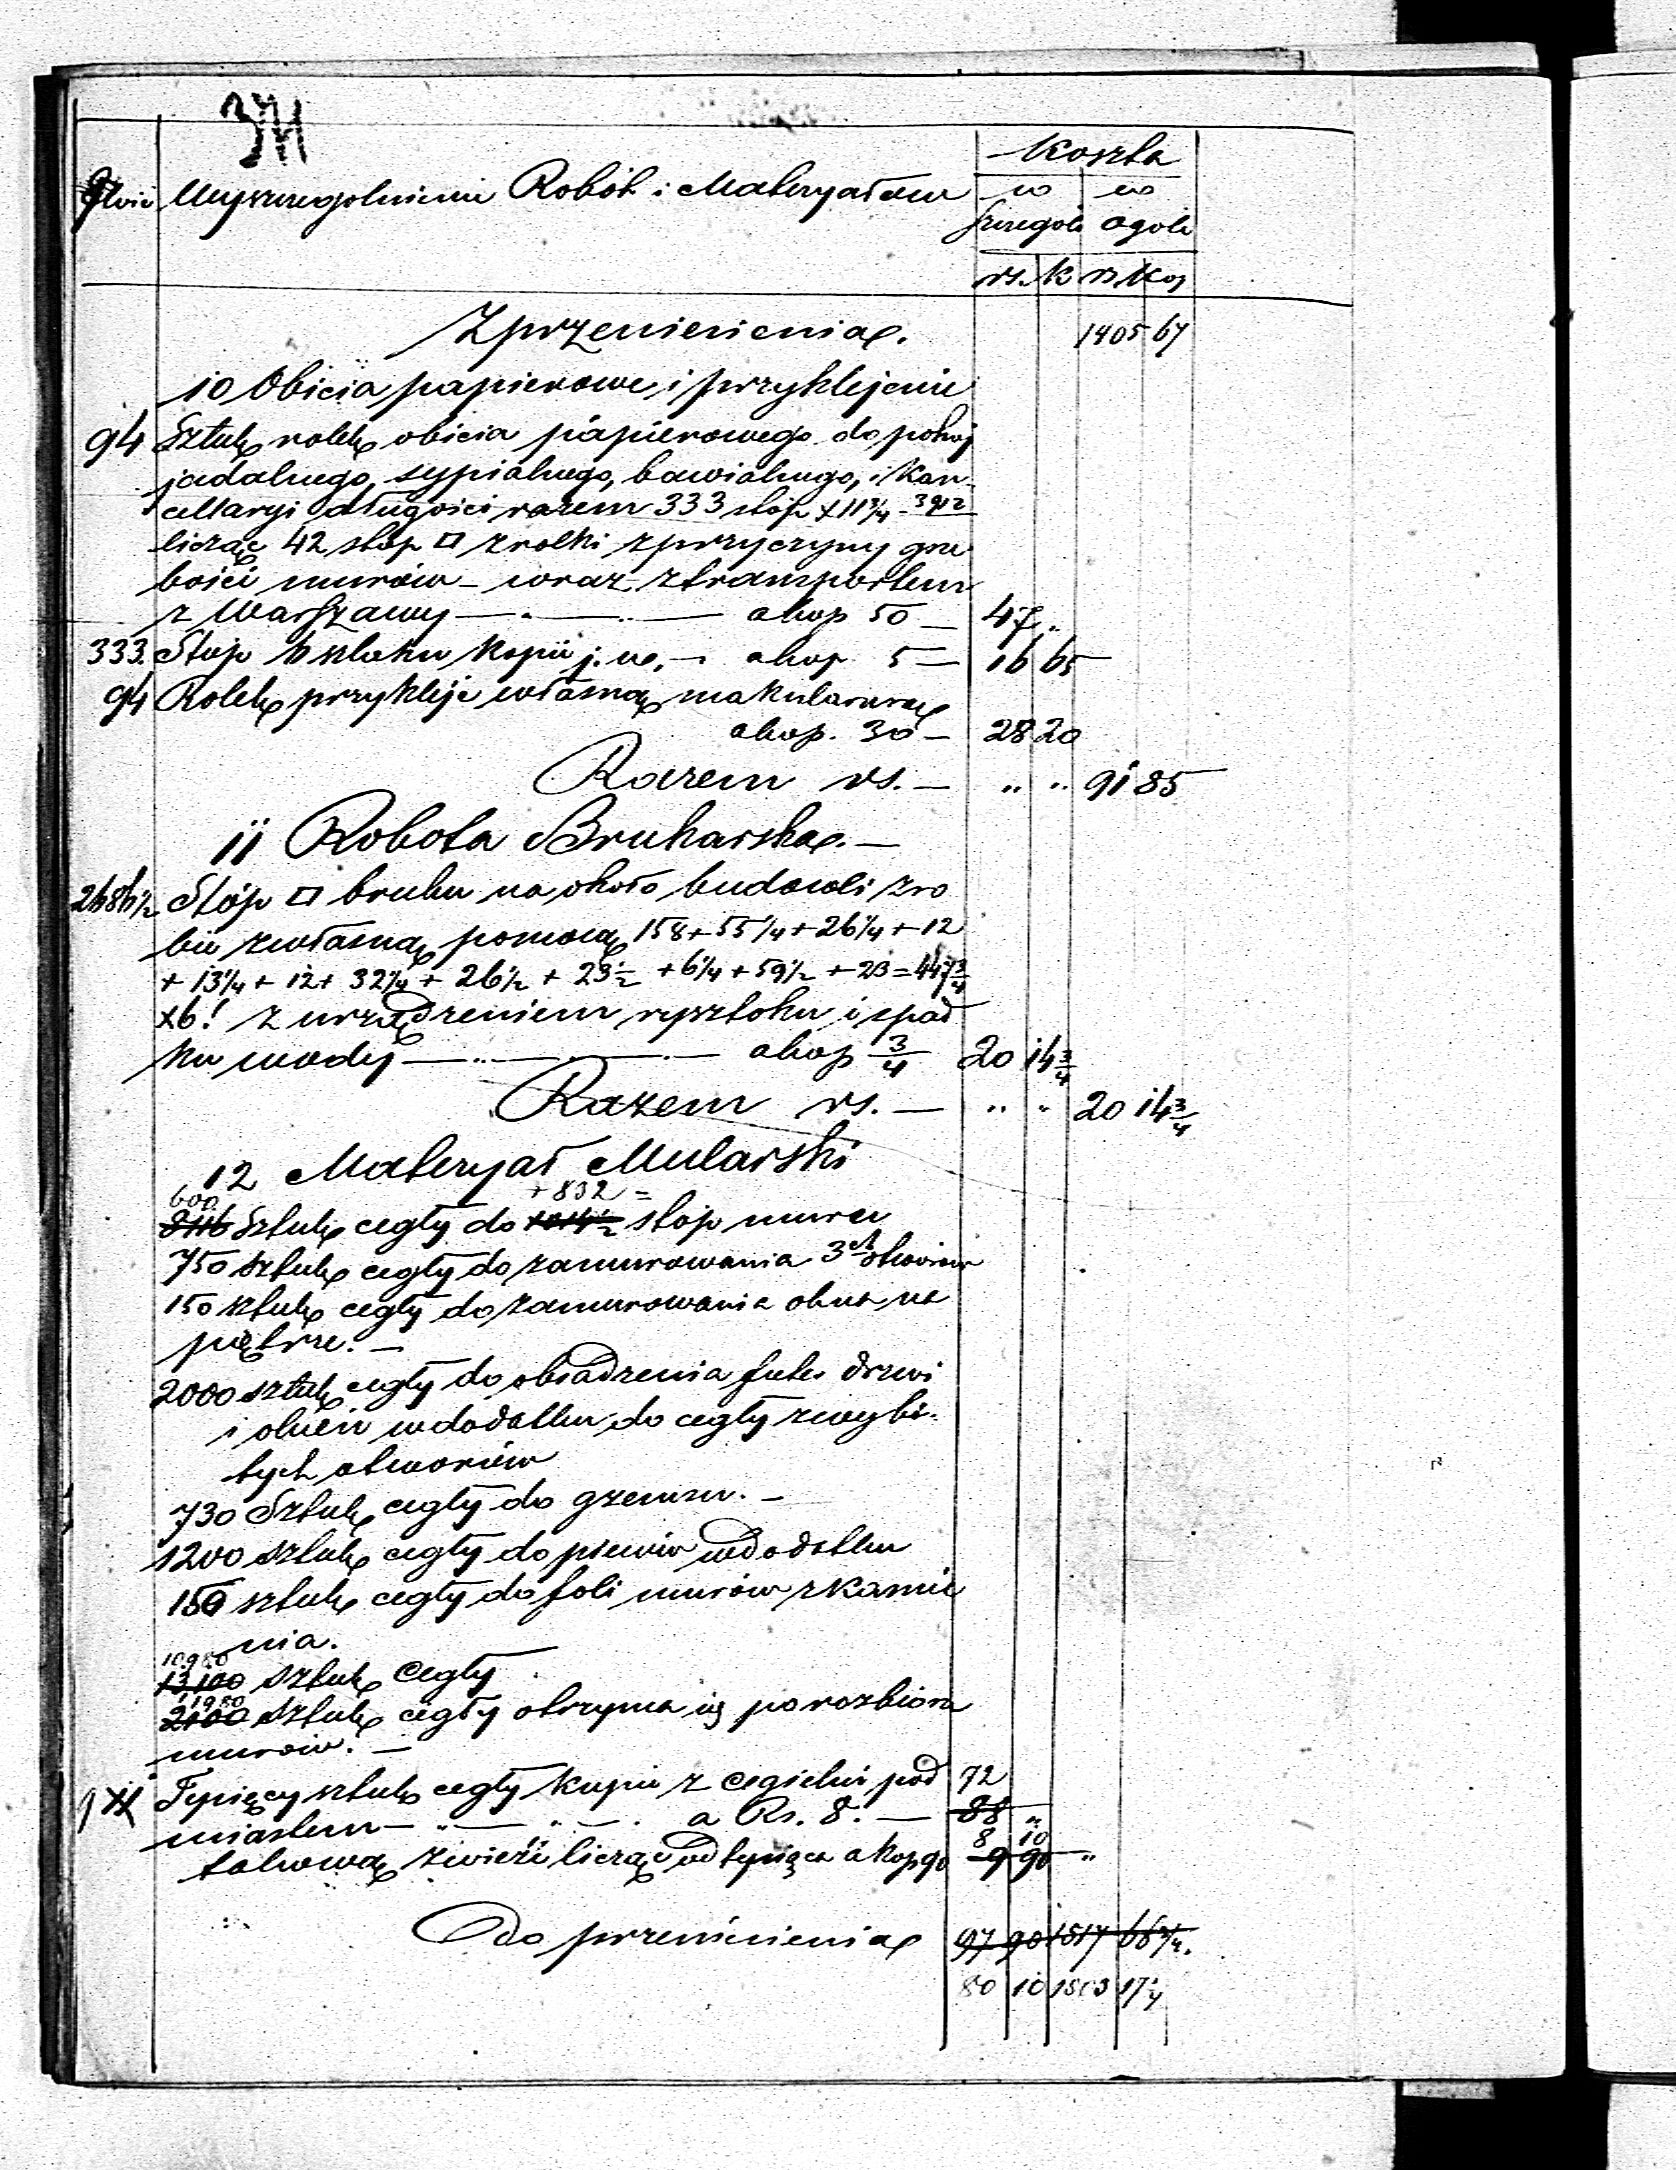 371
Ilość Wyszczególnienie Robót i Materyałów
Koszta
w w
szczególe ogóle
rs. k rs kop
Z przeniesienia. 1405 67
10 Obicia papierowe i przyklejenie
94 Sztuk rolek obicia papierowego do pokoj
jadalnego, sypialnego, bawialnego, i Kan-
cellaryi długości razem 333 stóp × 11 3/4 - 3912
licząc 42 stóp □ z rolki z przyczyny gru
bości murów - wraz z transportem
z Warszawy — „ — a kop 50 — 47 „
333. Stóp szlaku kupić j. w. — a kop 5 — 16 65
94 Rolek przykleić własną makulaturą
a kop. 30 — 28 20
Razem rs. — „ „ 91 85
11 Robota Brukarska. —
2686 1/2 Stóp □ bruku na około budowli zro
bić z własną pomocą 158 + 55 1/4 + 26 1/4 + 12
+ 13 1/4 + 12 + 32 1/4 + 26 1/2 + 23 1/2 + 6 1/4 + 59 1/2 + 23 = 447 3/4
×6! z urządzeniem rysztoku i spad
ku wody — „ — a kop 3/4 20 14 3/4
Razem rs. — „ „ 20 14 3/4
12 Materyał Mularski
600. + 832 =
8116 Sztuk cegły do 1014 1/2 stóp muru
750 sztuk cegły do zamurowania 3ch otworów
150 sztuk cegły do zamurowania okna na
piętrze. —
2000 sztuk cegły do obsadzenia futr. drzwi
i okien w dodatku do cegły z wybi-
tych otworów
730 Sztuk cegły do gzemsu. —
1200 sztuk cegły do pieców w dodatku
150 sztuk cegły do foli murów z kamie
nia.
10.980
13,100 sztuk Cegły
1980
2100 Sztuk cegły otrzyma się po rozbiorze
murów. —
9 11 Tysięcy sztuk cegły kupić z cegielni pod 72
miastem — „ — „ — . a Rs. 8. — 88 „
8 10
takową zwieźć licząc od tysiąca a kop 90 9 90 „
Do przeniesienia 97 90 1517 66 3/4.
80 10 1503 17 1/4